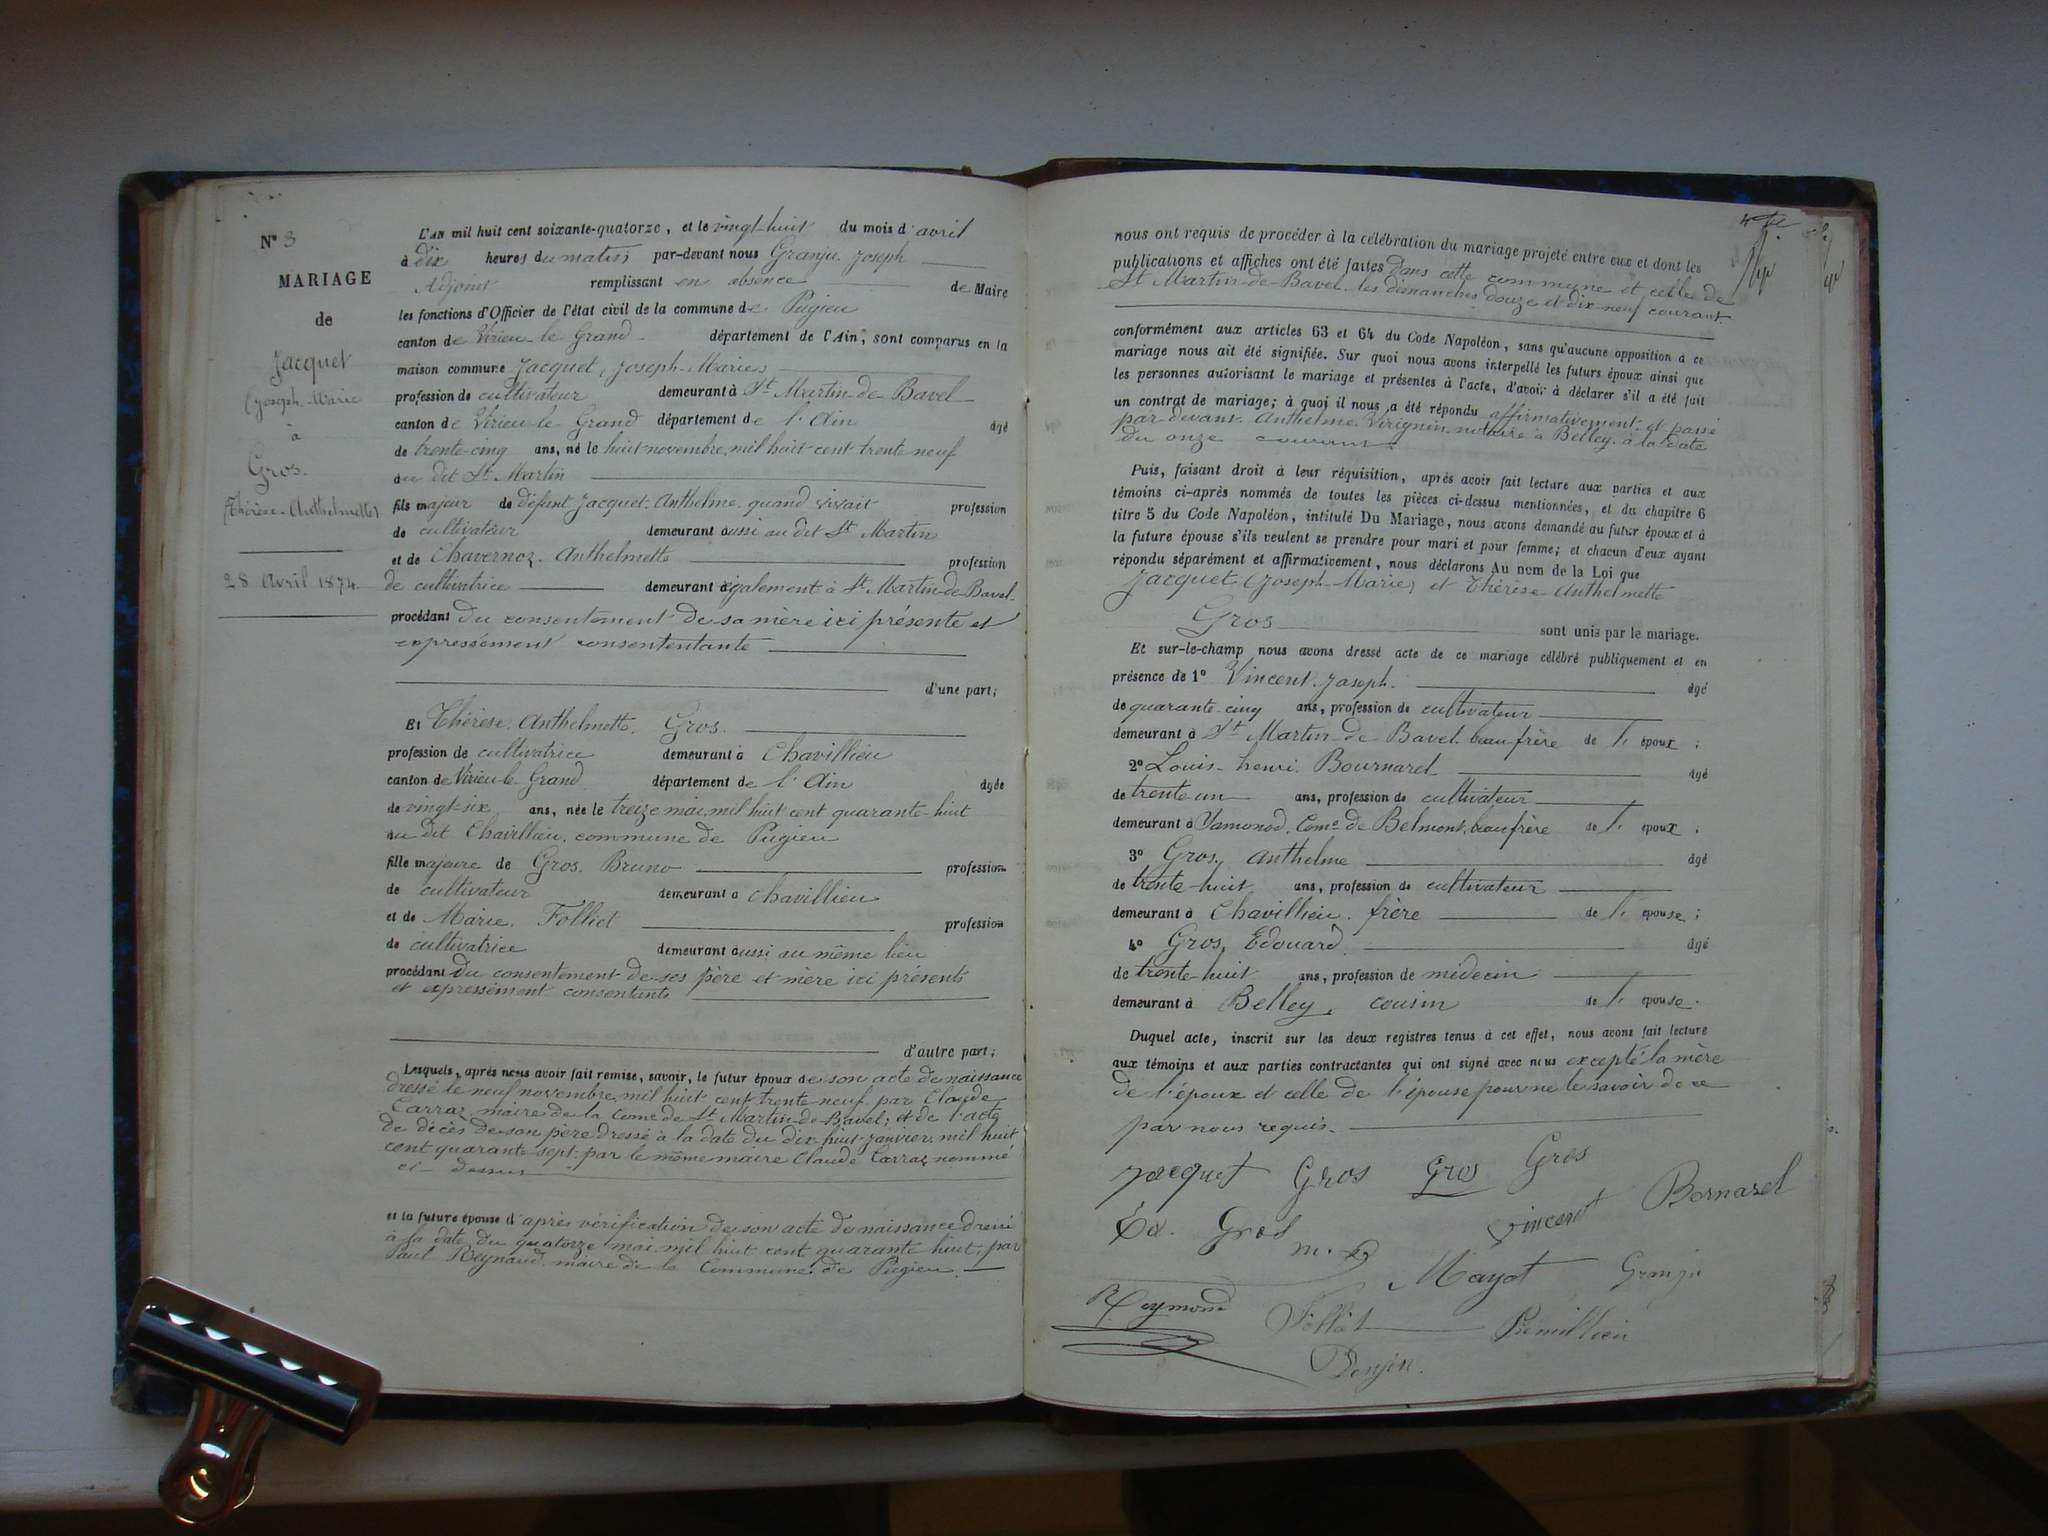 N° 3
MARIAGE
de
Jacquet
(Joseph-Marie
à
Gros.
(Thérèse-Anthelmette)
28 Avril 1874.
L'AN mil huit cent soixante-quatorze, et le vingt-huit du mois d'avril
à dix heures du matin par-devant nous Granju Joseph
Adjoint remplissant en absence de Maire
les fonctions d'Officier de l'état civil de la commune de Pugieu
canton de Virieu-le-Grand département de l'Ain, sont comparus en la
maison commune Jacquet (Joseph-Marie)
profession de cultivateur demeurant à St Martin-de-Bavel
canton de Virieu-le-Grand département de l'Ain âgé
de trente-cinq ans, né le huit novembre, mil huit cent trente neuf
au dit St Martin
fils majeur de défunt Jacquet. Anthelme quand vivait profession
de cultivateur demeurant aussi au dit St Martin
et de Chavernoz. Anthelmette profession
de cultivatrice demeurant également à St Martin-de-Bavel.
procédant du consentement de sa mère ici présente et
expressément consententante
d'une part;
Et Thérèse. Anthelmette. Gros.
profession de cultivatrice demeurant à Chavillieu
canton de Virieu-le-Grand département de l'Ain âgée
de vingt-six ans, née le treize mai, mil huit cent quarante-huit
au dit Chavillieu, commune de Pugieu
fille majeure de Gros. Bruno profession
de cultivateur demeurant à Chavillieu
et de Marie. Folliet profession
de cultivatrice demeurant aussi au même lieu
procédant du consentement de ses père et mère ici présents
et expressément consentants
d'autre part;
Lesquels, après nous avoir fait remise, savoir, le futur époux de son acte de naissance
dressé le neuf novembre, mil huit cent trente neuf, par Claude
Carraz, maire de la Come de St Martin-de-Bavel; et de l'acte
de décès de son père dressé à la date du dix huit janvier, mil huit
cent quarante sept: par le même maire Claude Carraz, nommé
ci-dessus
et la future épouse d'après vérification de son acte de naissance dressé
à la date du quatorze mai, mil huit cent quarante huit; par
Paul Reynaud. maire de la Commune de Pugieu.
nous ont requis de procéder à la célébration du mariage projeté entre eux et dont les
publications et affiches ont été faites dans cette commune et celle de
St Martin-de-Bavel les dimanches douze et dix-neuf courant.
conformément aux articles 63 et 64 du Code Napoléon, sans qu'aucune opposition à ce
mariage nous ait été signifiée. Sur quoi nous avons interpellé les futurs époux ainsi que
les personnes autorisant le mariage et présentes à l'acte, d'avoir à déclarer s'il a été fait
un contrat de mariage; à quoi il nous a été répondu affirmativement et passé
par devant. Anthelme. Virignin notaire à Belley. à la date
du onze courant
Puis, faisant droit à leur réquisition, après avoir fait lecture aux parties et aux
témoins ci-après nommés de toutes les pièces ci-dessus mentionnées, et du chapitre 6
titre 5 du Code Napoléon, intitulé Du Mariage, nous avons demandé au futur époux et à
la future épouse s'ils veulent se prendre pour mari et pour femme; et chacun d'eux ayant
répondu séparément et affirmativement, nous déclarons Au nom de la Loi que
Jacquet (Joseph-Marie) et Thérèse-Anthelmette
Gros sont unis par le mariage.
Et sur-le-champ nous avons dressé acte de ce mariage célébré publiquement et en
présence de 1° Vincent. Joseph. âgé
de quarante-cinq ans, profession de cultivateur
demeurant à St Martin-de-Bavel. beau frère de l'époux;
2° Louis-henri. Bournarel âgé
de trente un ans, profession de cultivateur
demeurant à Samonod, Come de Belmont, beau frère de l'époux;
3° Gros, Anthelme âgé
de trente-huit ans, profession de cultivateur
demeurant à Chavillieu. frère de l'épouse;
4° Gros, Edouard âgé
de trente-huit ans, profession de médecin
demeurant à Belley, cousin de l'épouse.
Duquel acte, inscrit sur les deux registres tenus à cet effet, nous avons fait lecture
aux témoins et aux parties contractantes qui ont signé avec nous excepté la mère
de l'époux et celle de l'épouse pour ne le savoir de ce
par nous requis.
Jacquet Gros Gros Gros
Ed. Gros Vincent Bernarel
Mayot Granju
Reymond Premillieu